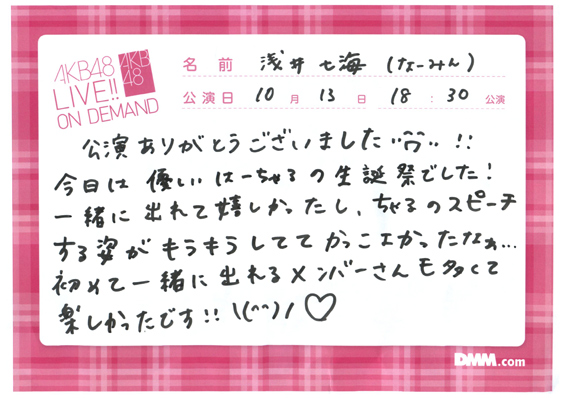 AKB48
LIVE!!
ON DEMAND
AKB
48
名前 浅井七海 (なーみん)
公演日 10月13日 18:30 公演
公演ありがとうございました !!
今日は優しいはーちゃるの生誕祭でした!
一緒に出れて嬉しかったし、ちゃるのスピーチ
する姿がもうキラしてて かっこエかったなぁ...
初めて一緒に出れるメンバーさんも多くて
楽しかったです!! \(^^)/ ♡
DMM.com